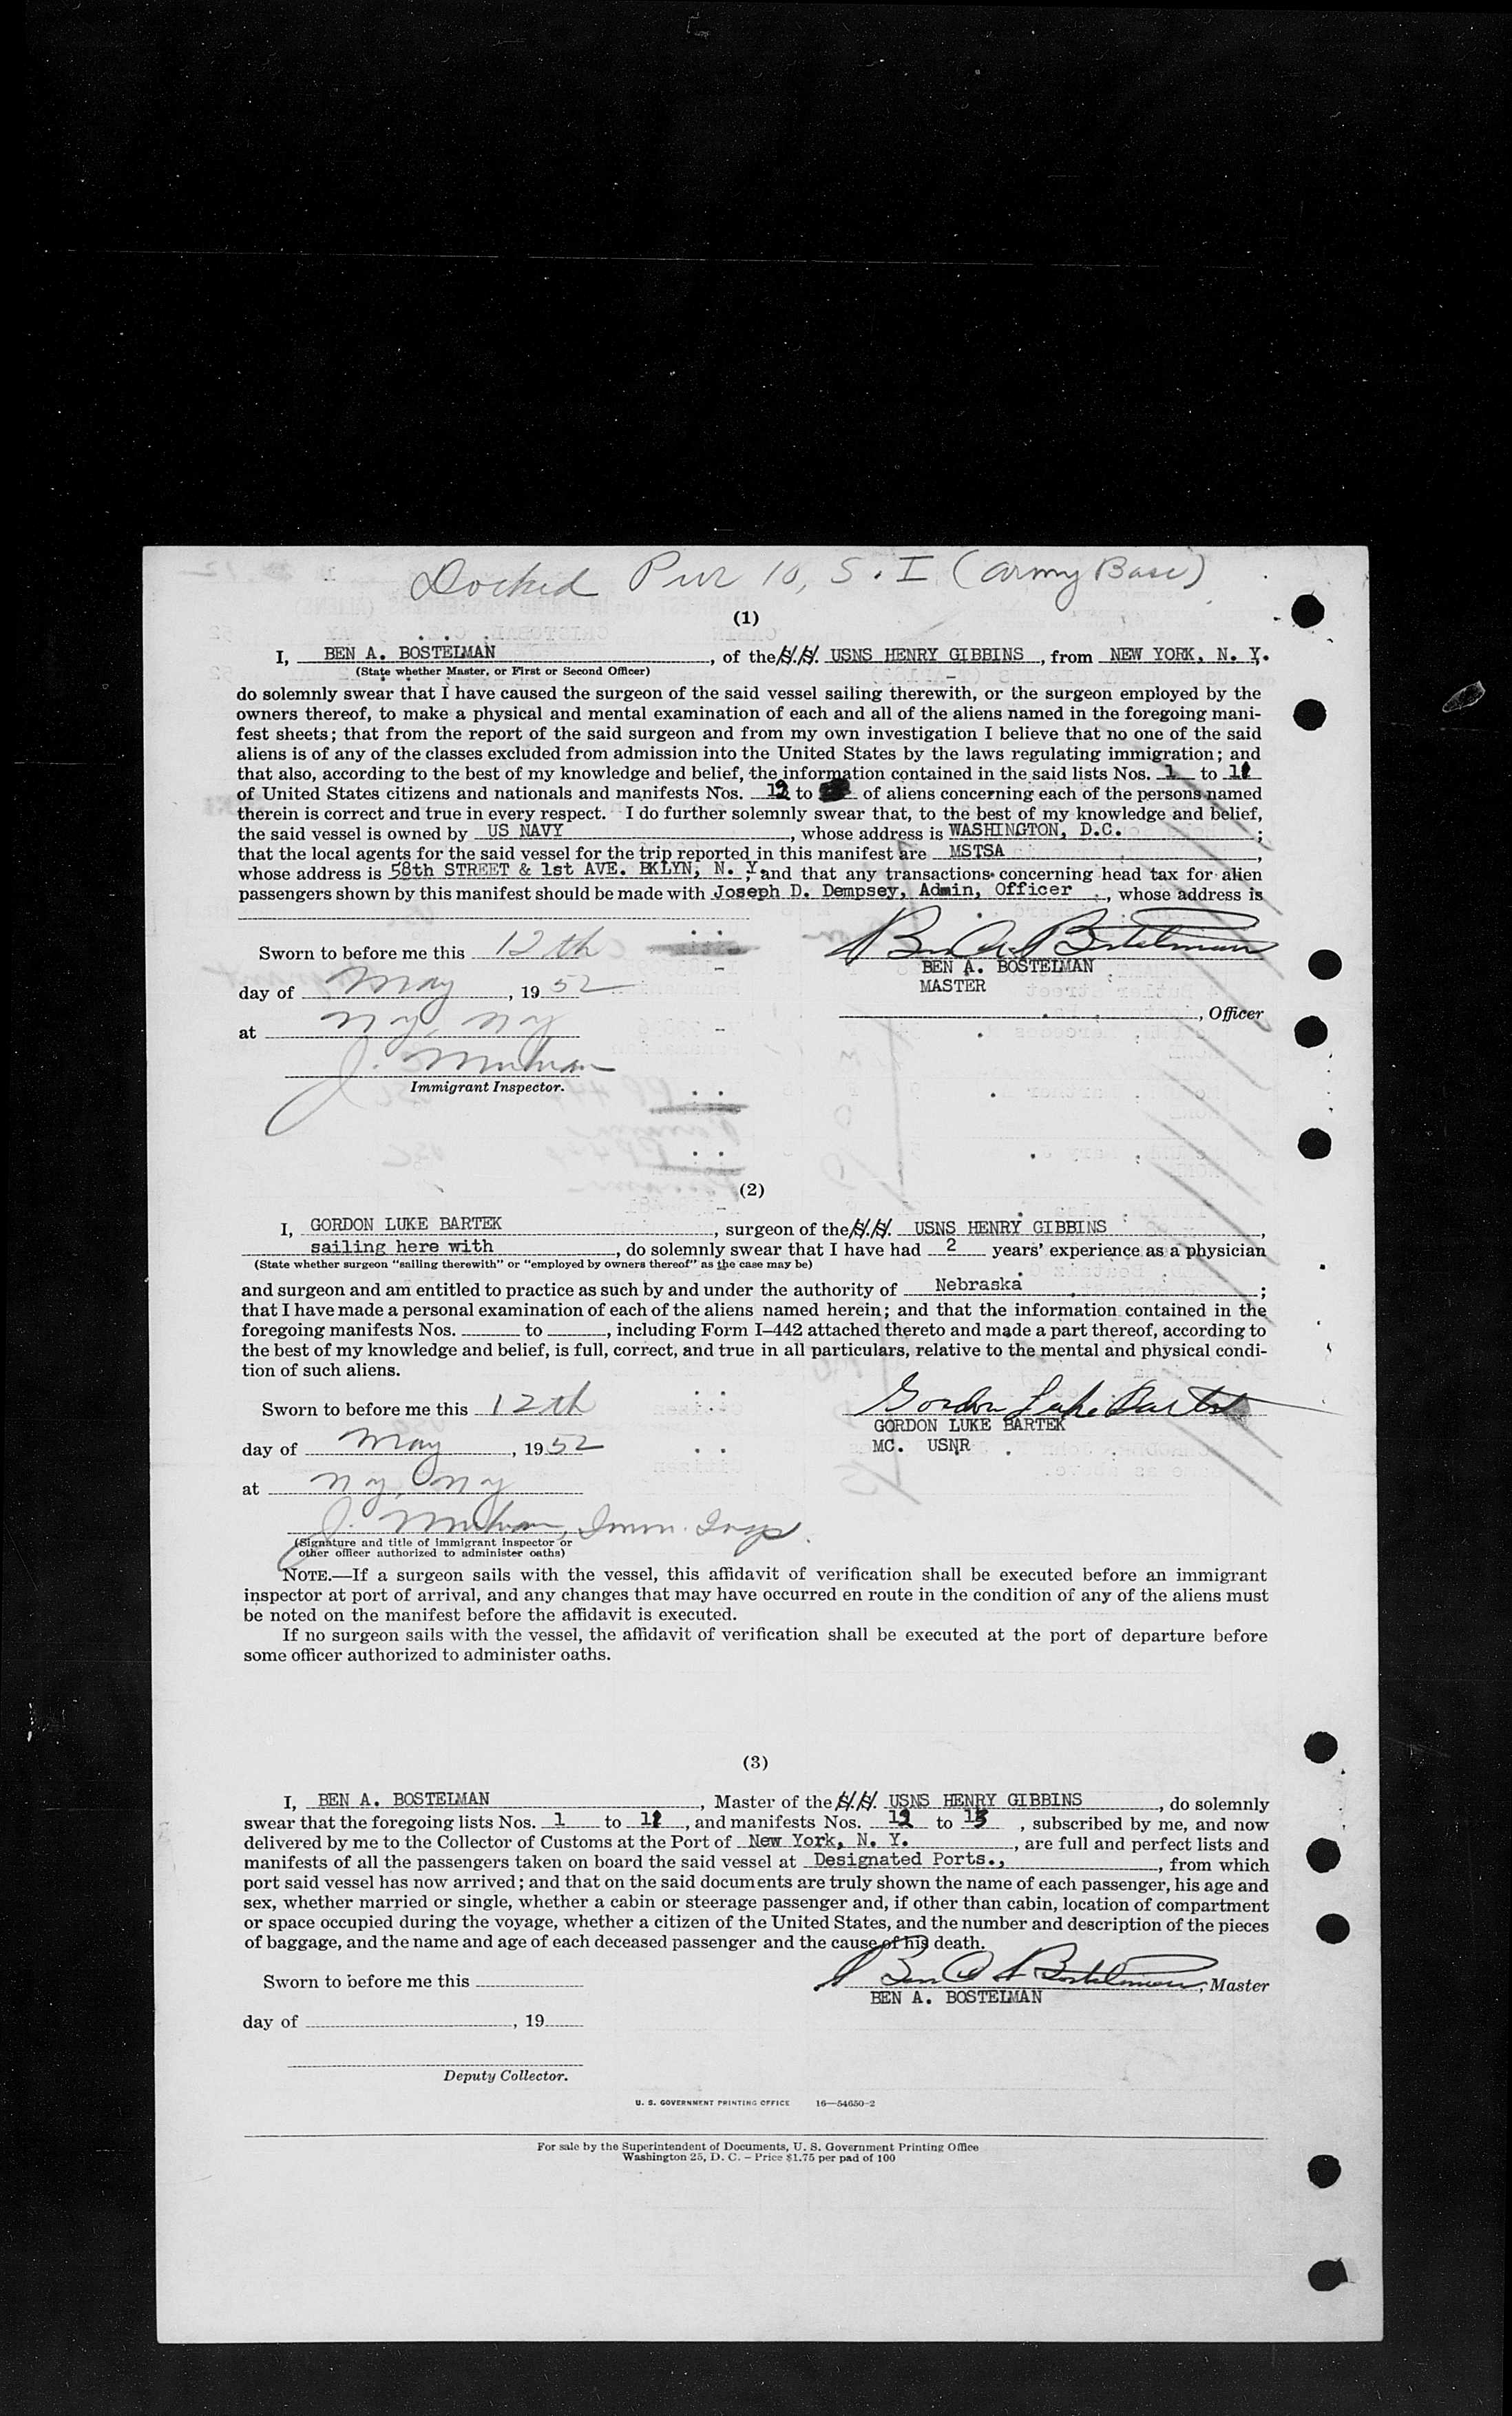 Docked Pier 10, S. I (Army Base)
(1)
I, BEN A. BOSTELMAN, of the S.S. USNS HENRY GIBBINS, from NEW YORK, N. Y.
(State whether Master, or First or Second Officer)
do solemnly swear that I have caused the surgeon of the said vessel sailing therewith, or the surgeon employed by the
owners thereof, to make a physical and mental examination of each and all of the aliens named in the foregoing mani-
fest sheets; that from the report of the said surgeon and from my own investigation I believe that no one of the said
aliens is of any of the classes excluded from admission into the United States by the laws regulating immigration; and
that also, according to the best of my knowledge and belief, the information contained in the said lists Nos. 1 to
of United States citizens and nationals and manifests Nos. to of aliens concerning each of the persons named
therein is correct and true in every respect. I do further solemnly swear that, to the best of my knowledge and belief,
the said vessel is owned by US NAVY, whose address is WASHINGTON, D.C.;
that the local agents for the said vessel for the trip reported in this manifest are MSTSA,
whose address is 58th STREET & 1st AVE. BKLYN, N. Y; and that any transactions concerning head tax for alien
passengers shown by this manifest should be made with Joseph D. Dempsey, Admin, Officer, whose address is
Sworn to before me this 12th
Ben A Bostelman
BEN A. BOSTELMAN
MASTER
day of May, 1952
, Officer
at NY, NY
J.
Immigrant Inspector.
(2)
I, GORDON LUKE BARTEK, surgeon of the S.S. USNS HENRY GIBBINS,
sailing here with, do solemnly swear that I have had 2 years' experience as a physician
(State whether surgeon "sailing therewith" or "employed by owners thereof" as the case may be)
and surgeon and am entitled to practice as such by and under the authority of Nebraska;
that I have made a personal examination of each of the aliens named herein; and that the information contained in the
foregoing manifests Nos. to , including Form I-442 attached thereto and made a part thereof, according to
the best of my knowledge and belief, is full, correct, and true in all particulars, relative to the mental and physical condi-
tion of such aliens.
Sworn to before me this 12th
Gordon Luke Bartek
GORDON LUKE BARTEK
MC. USNR
day of May, 1952
at NY, NY
J. Imm. Insp.
(Signature and title of immigrant inspector or
other officer authorized to administer oaths)
NOTE.—If a surgeon sails with the vessel, this affidavit of verification shall be executed before an immigrant
inspector at port of arrival, and any changes that may have occurred en route in the condition of any of the aliens must
be noted on the manifest before the affidavit is executed.
If no surgeon sails with the vessel, the affidavit of verification shall be executed at the port of departure before
some officer authorized to administer oaths.
(3)
I, BEN A. BOSTELMAN, Master of the S.S. USNS HENRY GIBBINS, do solemnly
swear that the foregoing lists Nos. 1 to , and manifests Nos. to , subscribed by me, and now
delivered by me to the Collector of Customs at the Port of New York, N. Y., are full and perfect lists and
manifests of all the passengers taken on board the said vessel at Designated Ports., from which
port said vessel has now arrived; and that on the said documents are truly shown the name of each passenger, his age and
sex, whether married or single, whether a cabin or steerage passenger and, if other than cabin, location of compartment
or space occupied during the voyage, whether a citizen of the United States, and the number and description of the pieces
of baggage, and the name and age of each deceased passenger and the cause of his death.
Sworn to before me this
Ben A Bostelman, Master
BEN A. BOSTELMAN
day of , 19
Deputy Collector.
U. S. GOVERNMENT PRINTING OFFICE 16—54650-2
For sale by the Superintendent of Documents, U. S. Government Printing Office
Washington 25, D. C. - Price $1.75 per pad of 100